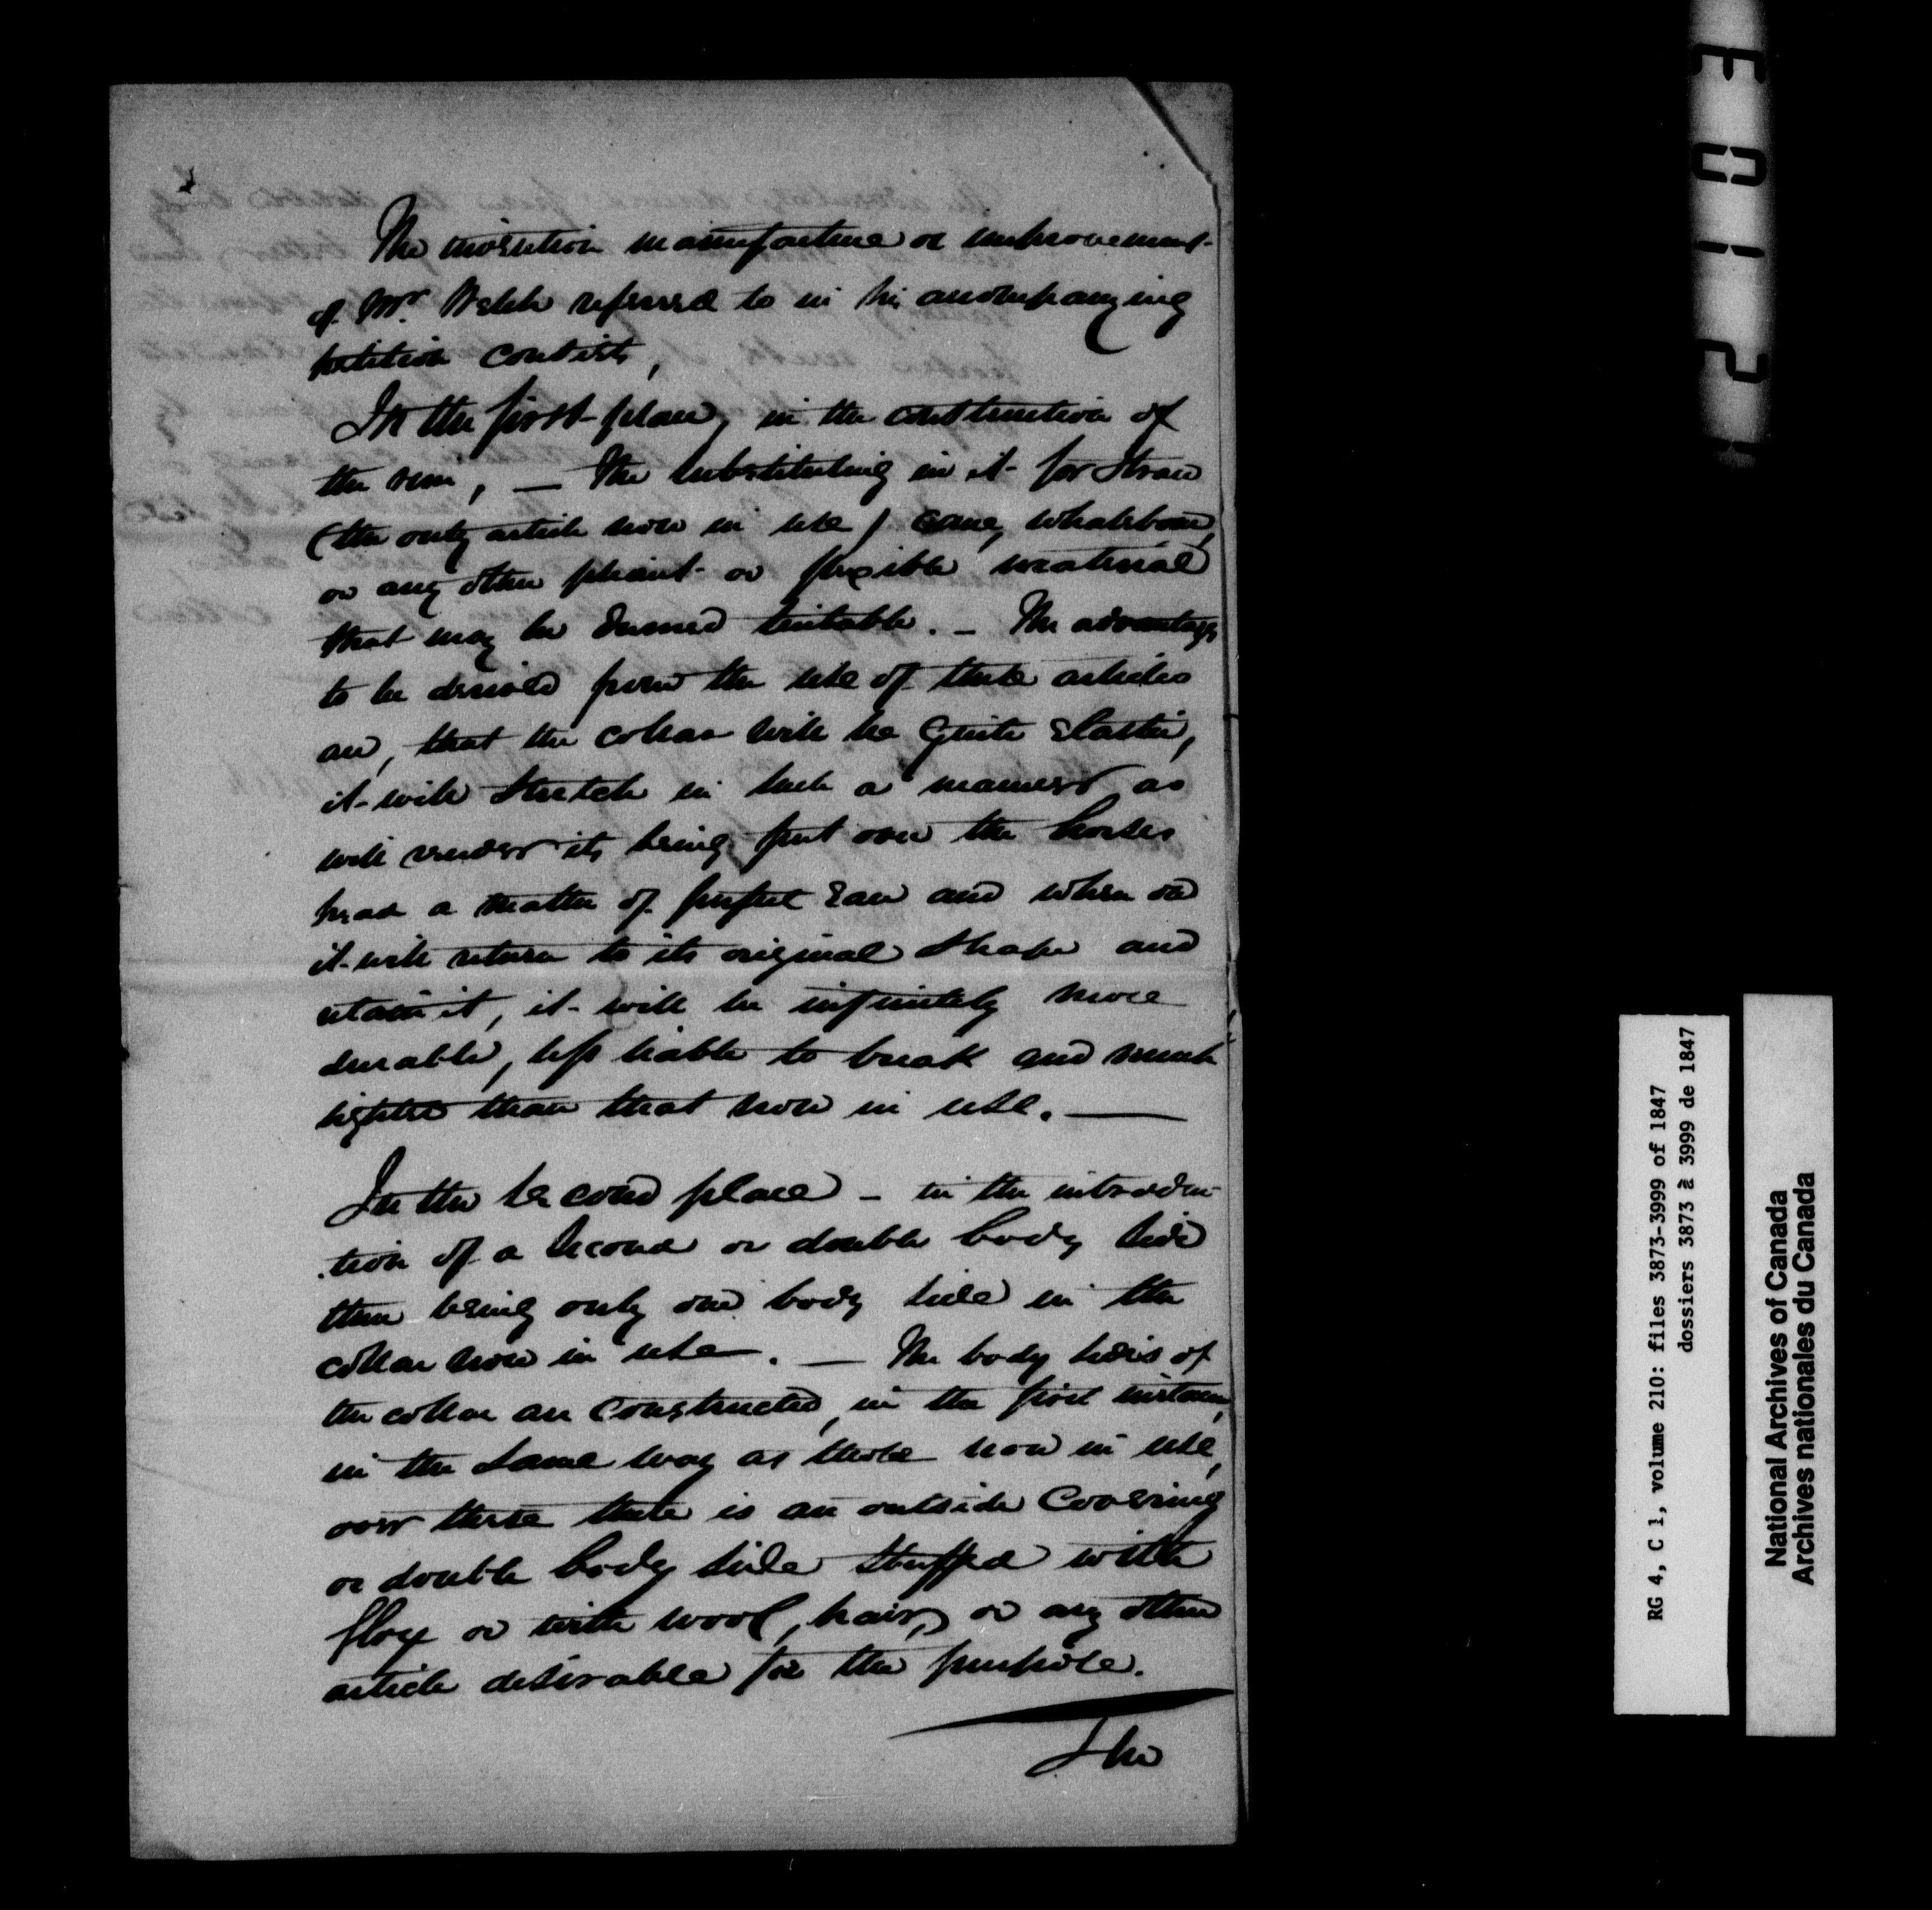 The invention manufacture or improvement
of Mr. Walsh referred to in his accompanying
petition consists,
In the first place, in the construction of
the rim, — The substituting in it for Straw
(the only article now in use) Cane, Whalebone,
or any other pliant or flexible material
that may be deemed suitable. — The advantages
to be derived from the use of these articles
are, that the collar will be Quite Elastic,
it will stretch in such a manner as
will render its being put over the horses
head a matter of perfect Ease and when on
it will return to its original shape and
retain it, it will be infinitely more
durable, less liable to break and much
lighter than that now in use. —
In the second place – in the introduc-
tion of a Second or double body side
there being only one body side in the
collar now in use. — The body sides of
the collar are constructed, in the first instance,
in the same way as those now in use,
over these there is an outside Covering
or double body side stuffed with
flox or with wool, hair, or any other
article desirable for the purpose.
The
E 0 1 2
RG 4, C 1, volume 210: files 3873-3999 of 1847
dossiers 3873 à 3999 de 1847
National Archives of Canada
Archives nationales du Canada